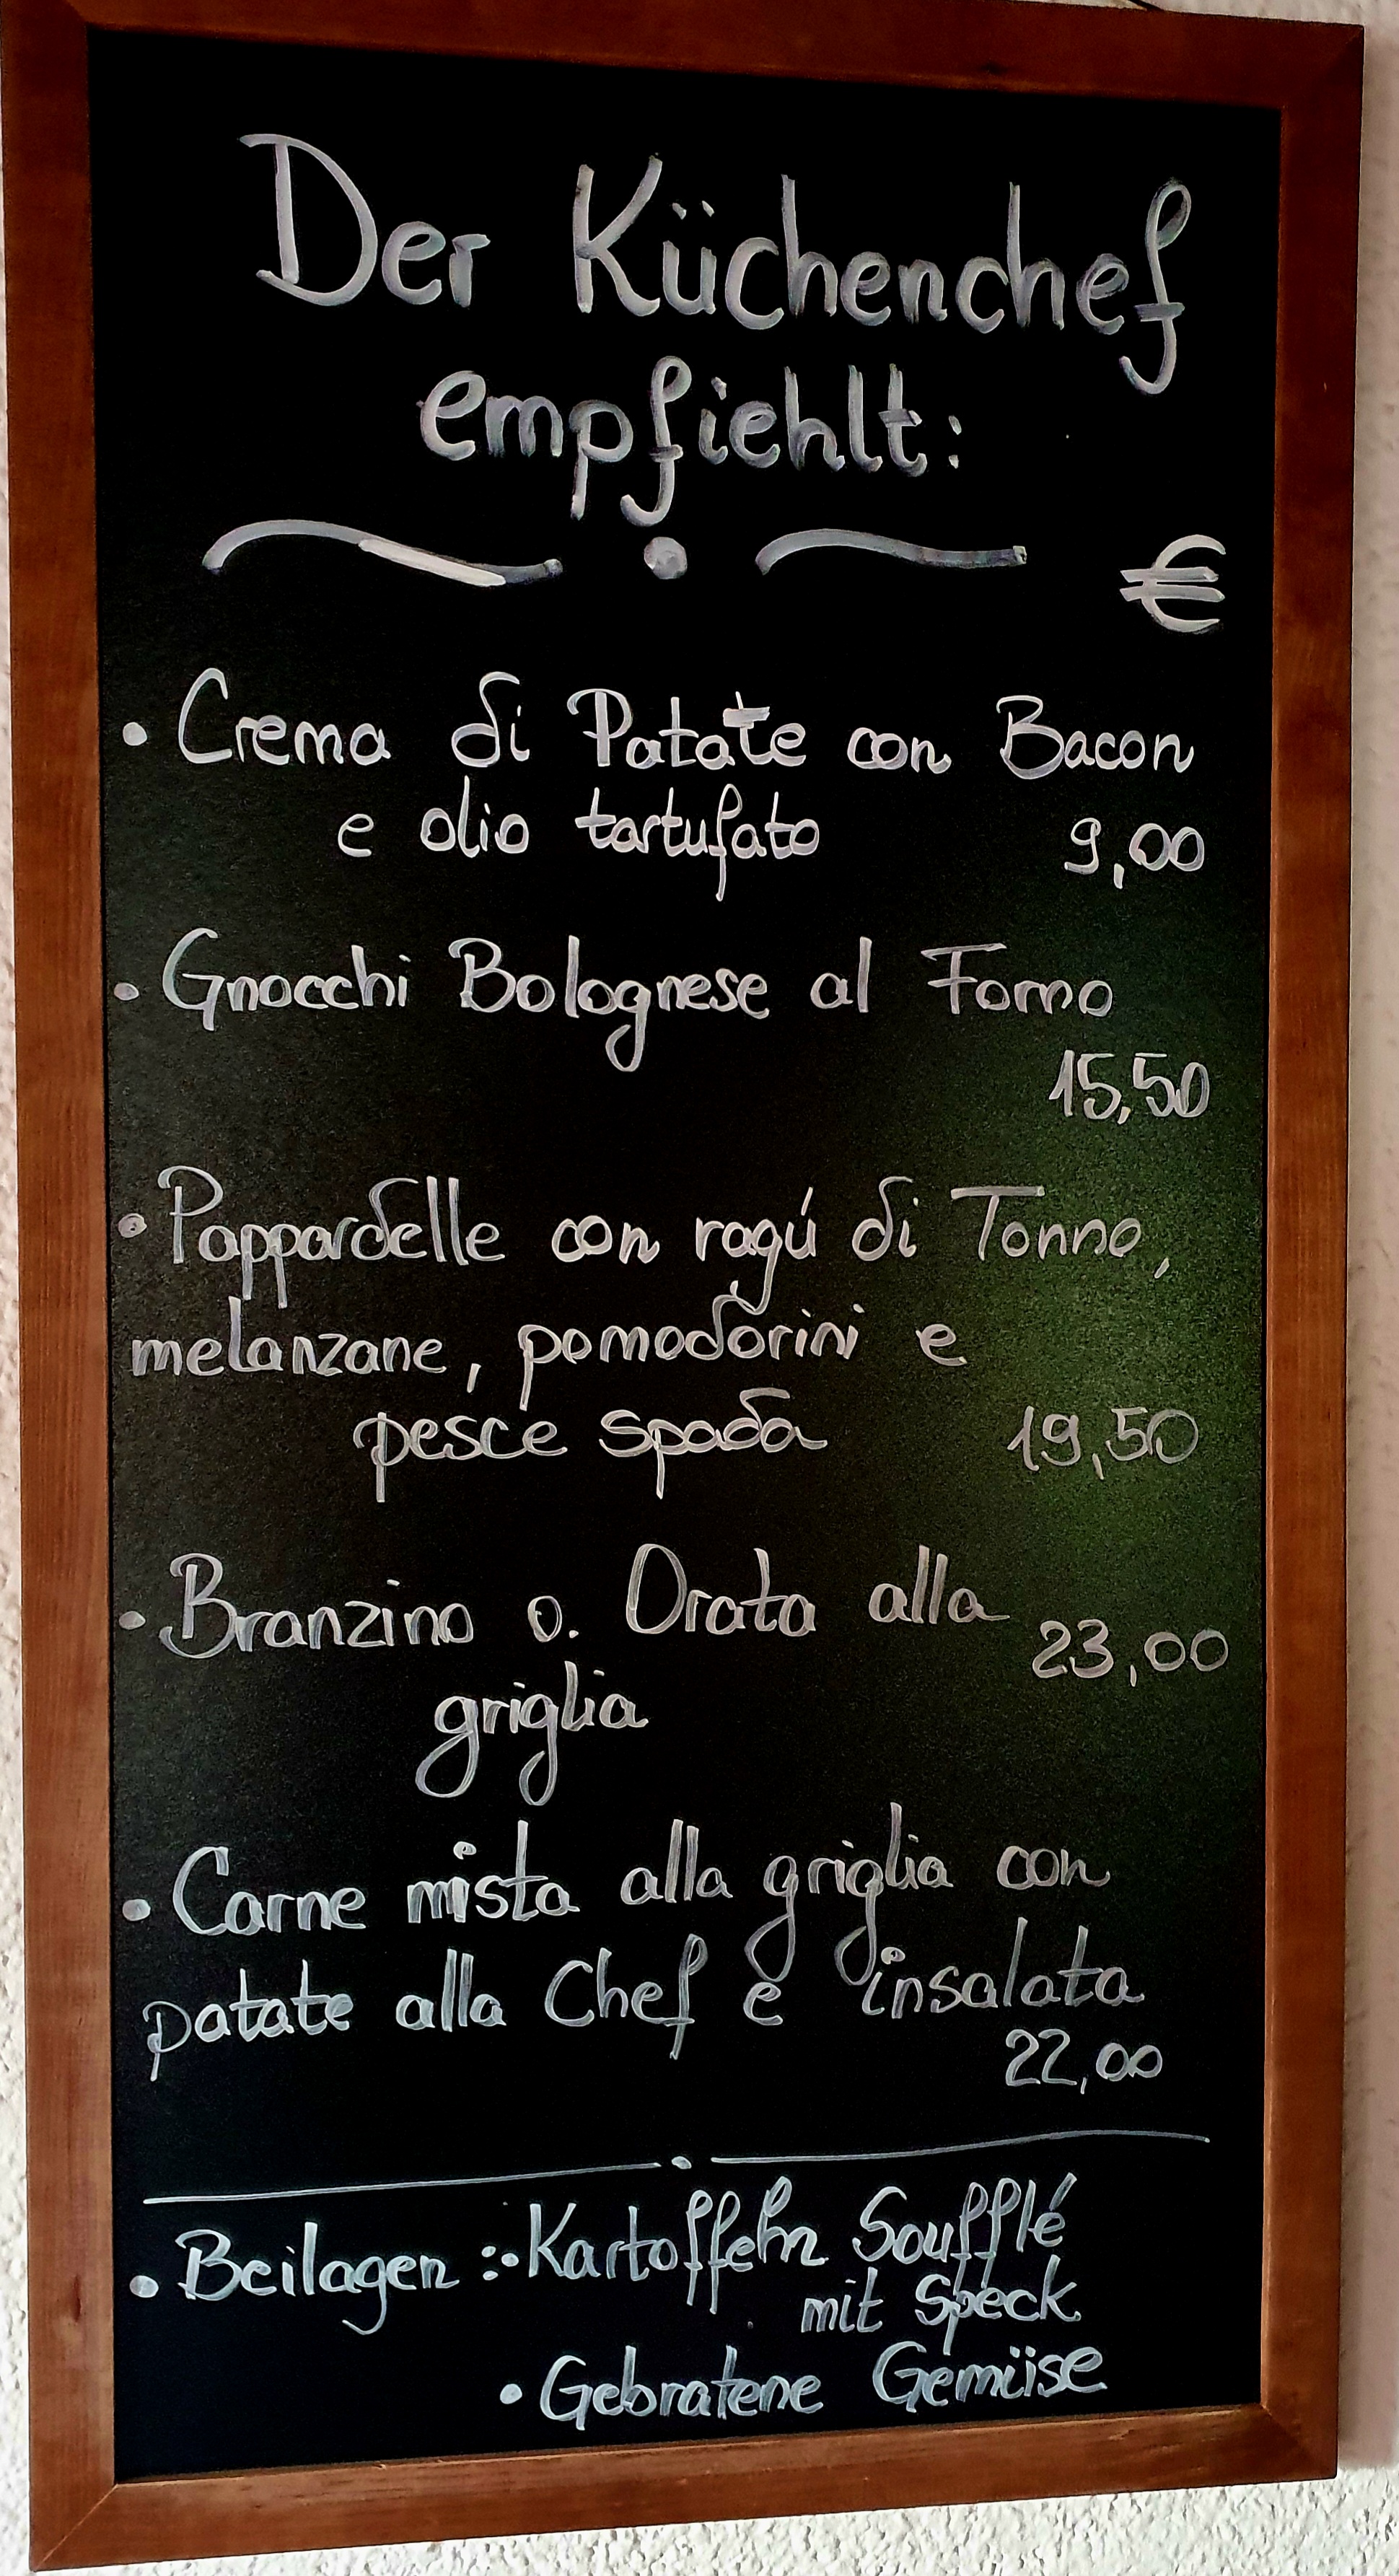 Der Küchenchef
empfiehlt:
€
• Crema di Patate con Bacon
e olio tartufato 9,00
• Gnocchi Bolognese al Forno
15,50
• Pappardelle con ragú di Tonno,
melanzane, pomodorini e
pesce spada 19,50
• Branzino o. Orata alla 23,00
griglia
• Carne mista alla griglia con
patate alla Chef e insalata
22,00
• Beilagen : • Kartoffeln Soufflé
mit Speck
• Gebratene Gemüse